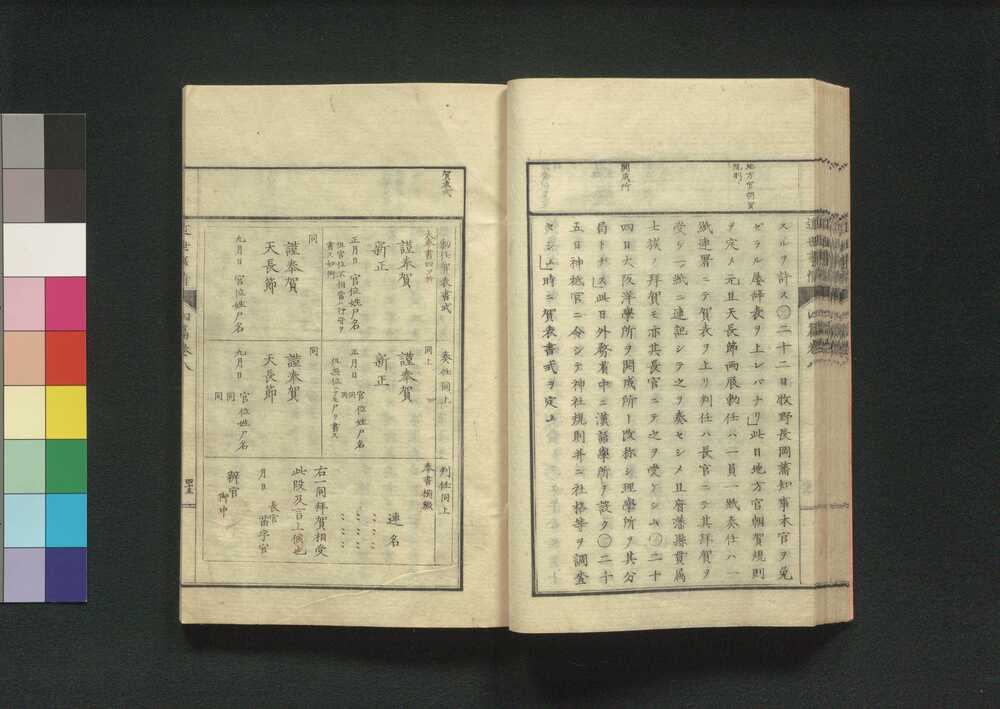 地方官朝賀
規則
開成所
スルヲ許ス○二十二日牧野長岡藩知事本官ヲ免
ゼラル屢辞表ヲ上レバナリ」此日地方官朝賀規則
ヲ定メ元旦天長節両度勅任ハ一員一紙奏任ハ一
紙連署ニテ賀表ヲ上リ判任ハ長官ニテ其拜賀ヲ
受ケ一紙ニ連記シテ之ヲ奏セシメ且府藩縣貫属
士族ノ拜賀モ亦其長官ニテ之ヲ受ケシム○二十
四日大阪洋學所ヲ開成所ト改称シ理學所ヲ其分
局トナス」此日外務省中ニ漢語學所ヲ設ク○二十
五日神祇官ニ令シテ神社規則并ニ社格等ヲ調査
セシム」時ニ賀表書式ヲ定ム
賀表式
勅任賀表書式
大奉書四ツ折
謹奉賀
新正
正月日 官位姓尸名
但官位不相當ハ行守ヲ
書ス如例
同
謹奉賀
天長節
九月日 官位姓尸名
奏任同上
同上
謹奉賀
新正
正月日 官位姓尸名
同
同
但無位ハ尸ヲ書ス
同
謹奉賀
天長節
九月日 官位姓尸名
同
同
判任同上
奉書横綴
連名
右一同拜賀相受
此段及言上候也
月日
長官
苗字官
辨官
御中
四十五